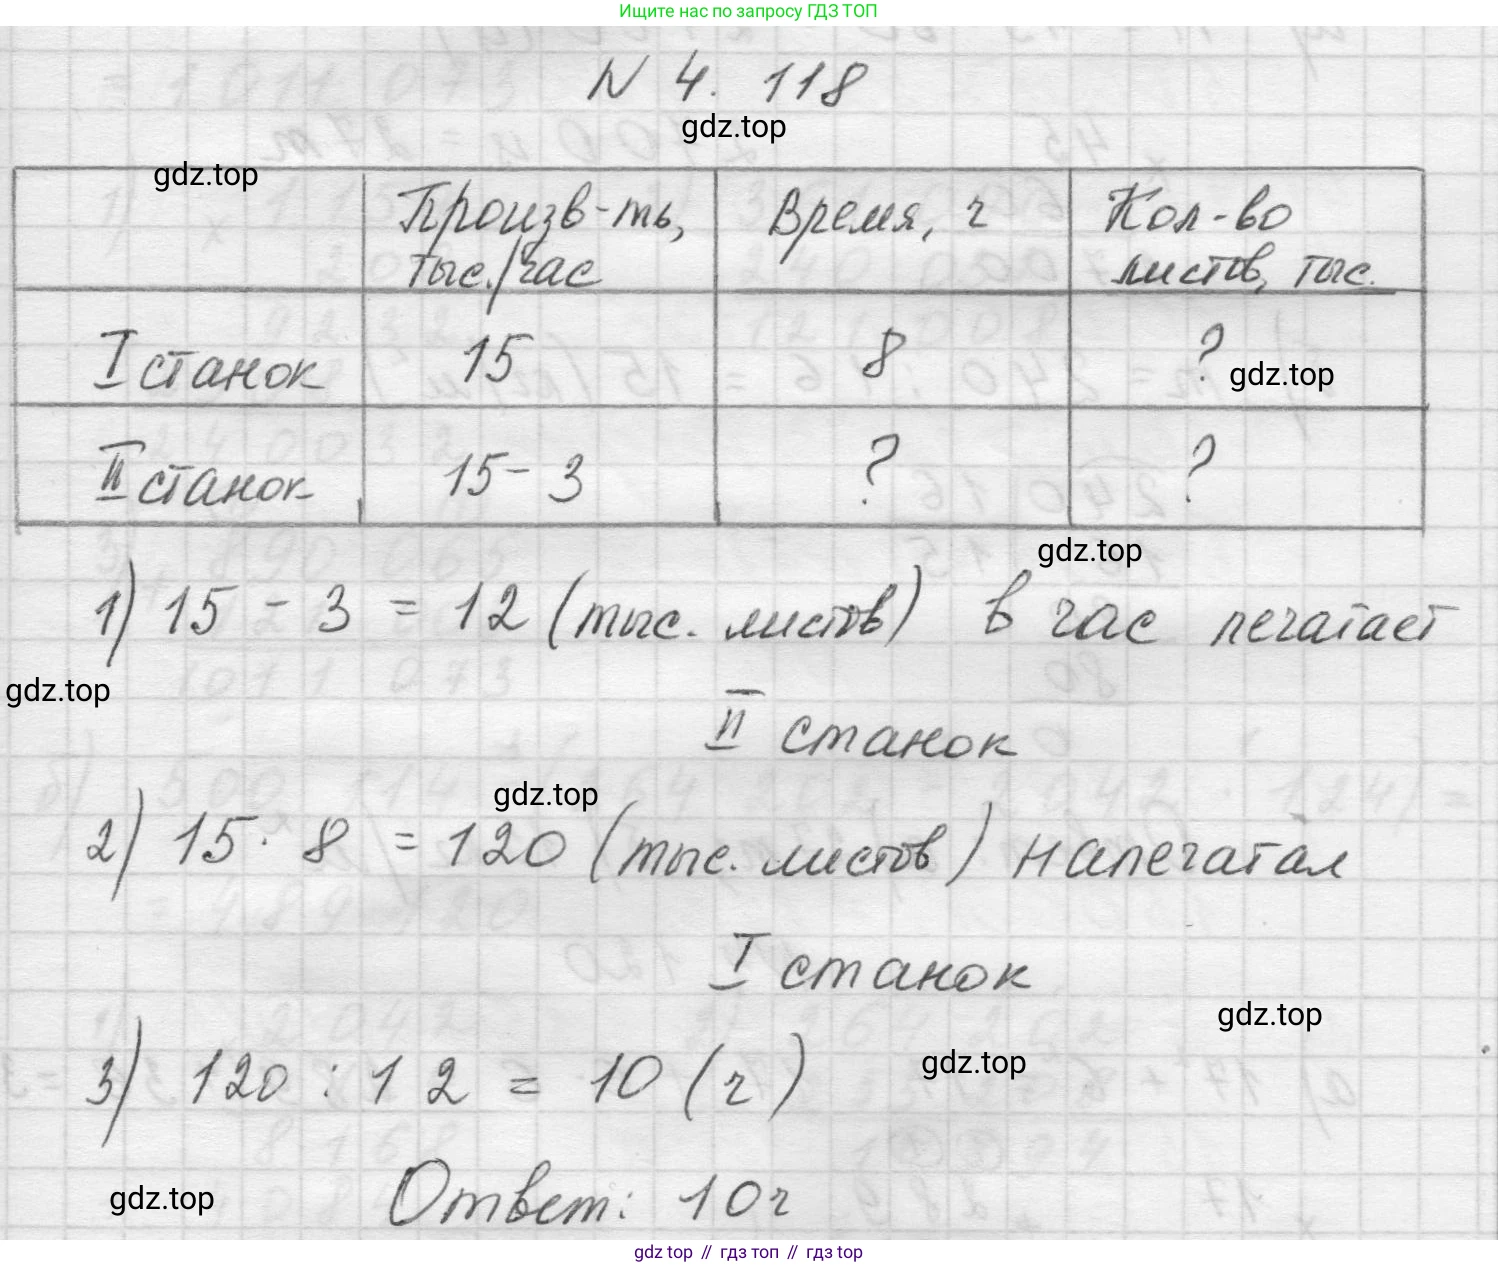 Ищите нас по запросу ГДЗ ТОП
N 4. 118
gdz.top
gdz.top
Произв-ть, тыс./час
Время, ч
Кол-во листов, тыс.
I станок 15 8 ?
gdz.top
II станок 15-3 ? ?
gdz.top
1) 15 - 3 = 12 (тыс. листов) в час печатает
gdz.top
II станок
gdz.top
2) 15 · 8 = 120 (тыс. листов) напечатал
I станок
gdz.top
gdz.top
3) 120 : 12 = 10 (ч)
gdz.top
Ответ: 10ч
gdz top // гдз топ // гдз top